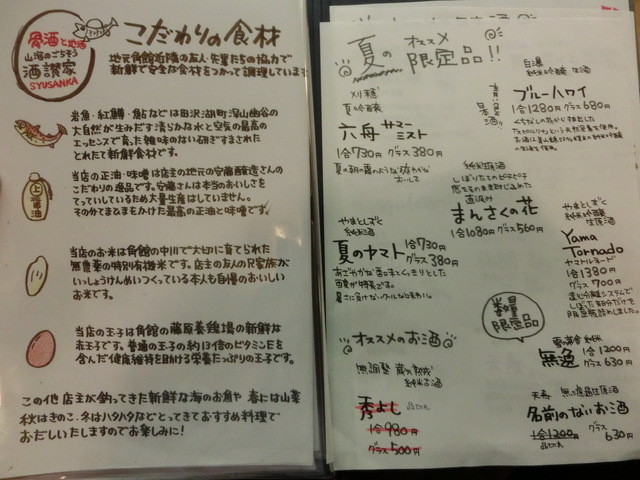 骨酒と地酒
山海のごちそう
酒讃家
SYUSANKA
こだわりの食材
地元角館近隣の友人・先輩たちの協力で
新鮮で安全な食材をつかって調理しています
岩魚・紅鱒・鮎などは田沢湖町深山幽谷の
大自然が生みだす清らかな水と空気の最高の
エッセンスで育った雑味のない研ぎすまされた
とれたて新鮮食材です。
当店の正油・味噌は店主の地元の安藤醸造さんの
こだわりの逸品です。安藤さんは本当のおいしさを
てっしているため大量生産はしていません。
その分てまひまをかけた最高の正油と味噌です。
上
正油
当店のお米は角館の中川で大切に育てられた
無農薬の特別有機米です。店主の友人のR家族が
いっしょうけんめいつくっている本人も自慢のおいしい
お米です。
当店の玉子は角館の藤原養鶏場の新鮮な
赤玉子です。普通の玉子の約13倍のビタミンEを
含んだ健康維持を助ける栄養たっぷりの玉子です。
この他店主が釣ってきた新鮮な海のお魚や春には山菜
秋はきのこ、冬はハタハタなどとってきておすすめ料理で
おだしいたしますのでお楽しみに!
夏の オススメ
限定品!!
刈穂
夏の吟醸
六舟 サマー
ミスト
1合730円 グラス380円
夏の朝の霧のような
白瀑
純米吟醸 生酒
青い
日本酒
ブルーハワイ
1合1280円 グラス680円
純米生原酒
しぼりたてのピチピチ
直汲み
まんさくの花
1合1080円 グラス560円
やまとしずく
純米吟醸
夏のヤマト 1合730円
グラス380円
やまとしずく
純米吟醸
生原酒
Yama
Tornado
ヤマトルネード
1合1380円
グラス700円
遠心分離システムで
しぼった部分だけを
限定瓶詰めしました。
数量
限定品
オススメのお酒
無調整 蔵内熟成
純米古酒
秀よし 品切れ
1合980円
グラス500円
純米
無逸 1合1200円
グラス630円
天寿
名前のないお酒
1合1200円 グラス
630円